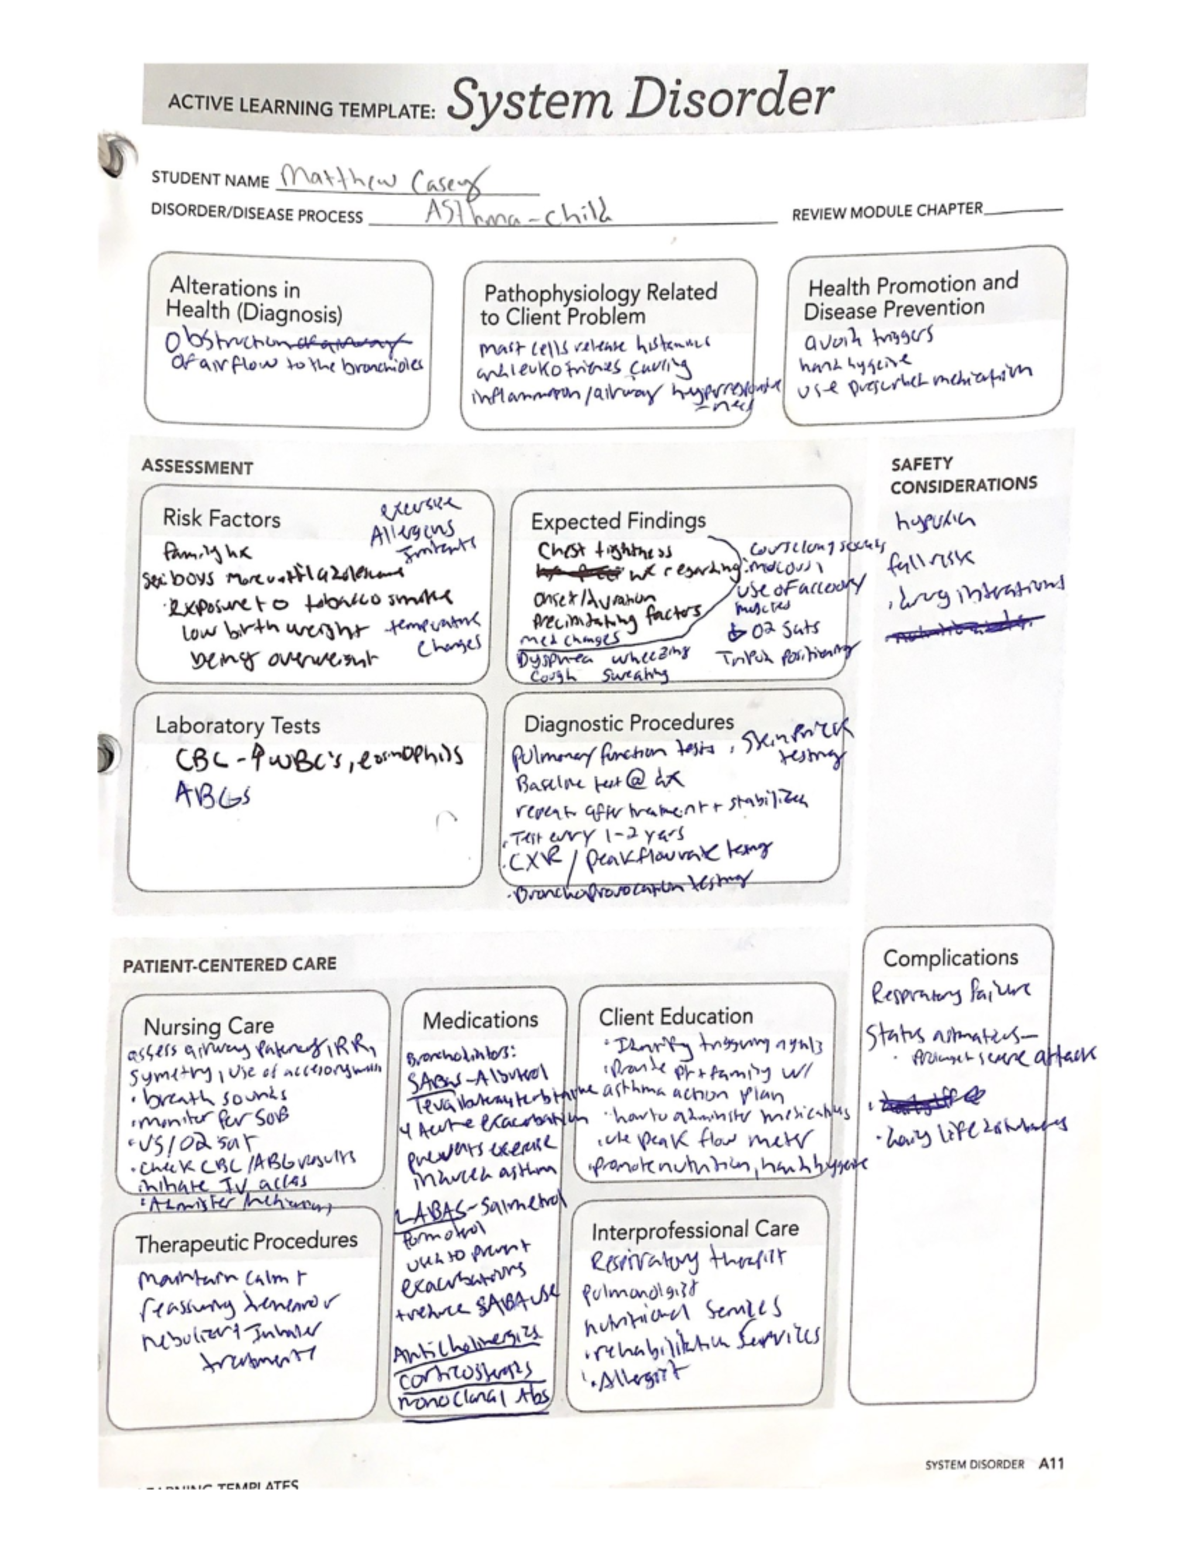 ACTIVE LEARNING TEMPLATE: System Disorder
STUDENT NAME Matthew Casey
DISORDER/DISEASE PROCESS Asthma-child
REVIEW MODULE CHAPTER
Alterations in
Health (Diagnosis)
Obstruction of airway
of airflow to the bronchioles
Pathophysiology Related
to Client Problem
mast cells release
and leukotrienes causing
inflammation/airway
Health Promotion and
Disease Prevention
avoid triggers
hand hygeine
use prescribed medication
ASSESSMENT
Risk Factors
exercise
Allergens
Irritants
family hx
Sex: boys more until adolescence
exposure to tobacco smoke
low birth weight
temperature
changes
being overweight
Expected Findings
Chest tightness
hx regarding:
onset/duration
Precipitating factors
med changes
Dyspnea wheezing
Cough sweating
Coarse lung sounds
mucous
use of accessory
muscles
↓ O2 Sats
Tripod positioning
SAFETY
CONSIDERATIONS
hypoxia
fall risk
. drug interations
Laboratory Tests
CBC - ↑ WBC's, eosinophils
ABGs
Diagnostic Procedures
Pulmonary function tests . Skin prick
testing
Baseline test @ dx
repeat after treatment + stabilized
. Test every 1-2 years
. CXR / peak flow rate testing
. Bronchoprovocation testing
PATIENT-CENTERED CARE
Nursing Care
assess airway patency, RR,
symetry, use of accessory
• breath sounds
• monitor for SOB
• VS/O2 sat
• Check CBC/ABG results
initiate IV access
• Administer
Medications
Bronchodilators:
SABAs - Albuterol
Levalbuterol terbutaline
Acute exacerbation
prevents exercise
induced asthma
LABAS - Salmetrol
formotrol
used to prevent
exacerbations
+ reduce SABA use
Anticholinergics
corticosteroids
monoclonal Abs
Client Education
• Identify triggering agents
• Provide pt + family w/
asthma action plan
• how to administer medications
• use peak flow meter
• promote nutrition, hand hygeine
Complications
Respiratory failure
Status asthmaticus-
• Prolonged severe attack
• daily life disturbances
Therapeutic Procedures
maintain calm +
reassuring demeanor
nebulizer + Inhaler
treatments
Interprofessional Care
Respiratory therapist
pulmonologist
nutritional services
• rehabilitation services
• Allergist
SYSTEM DISORDER A11